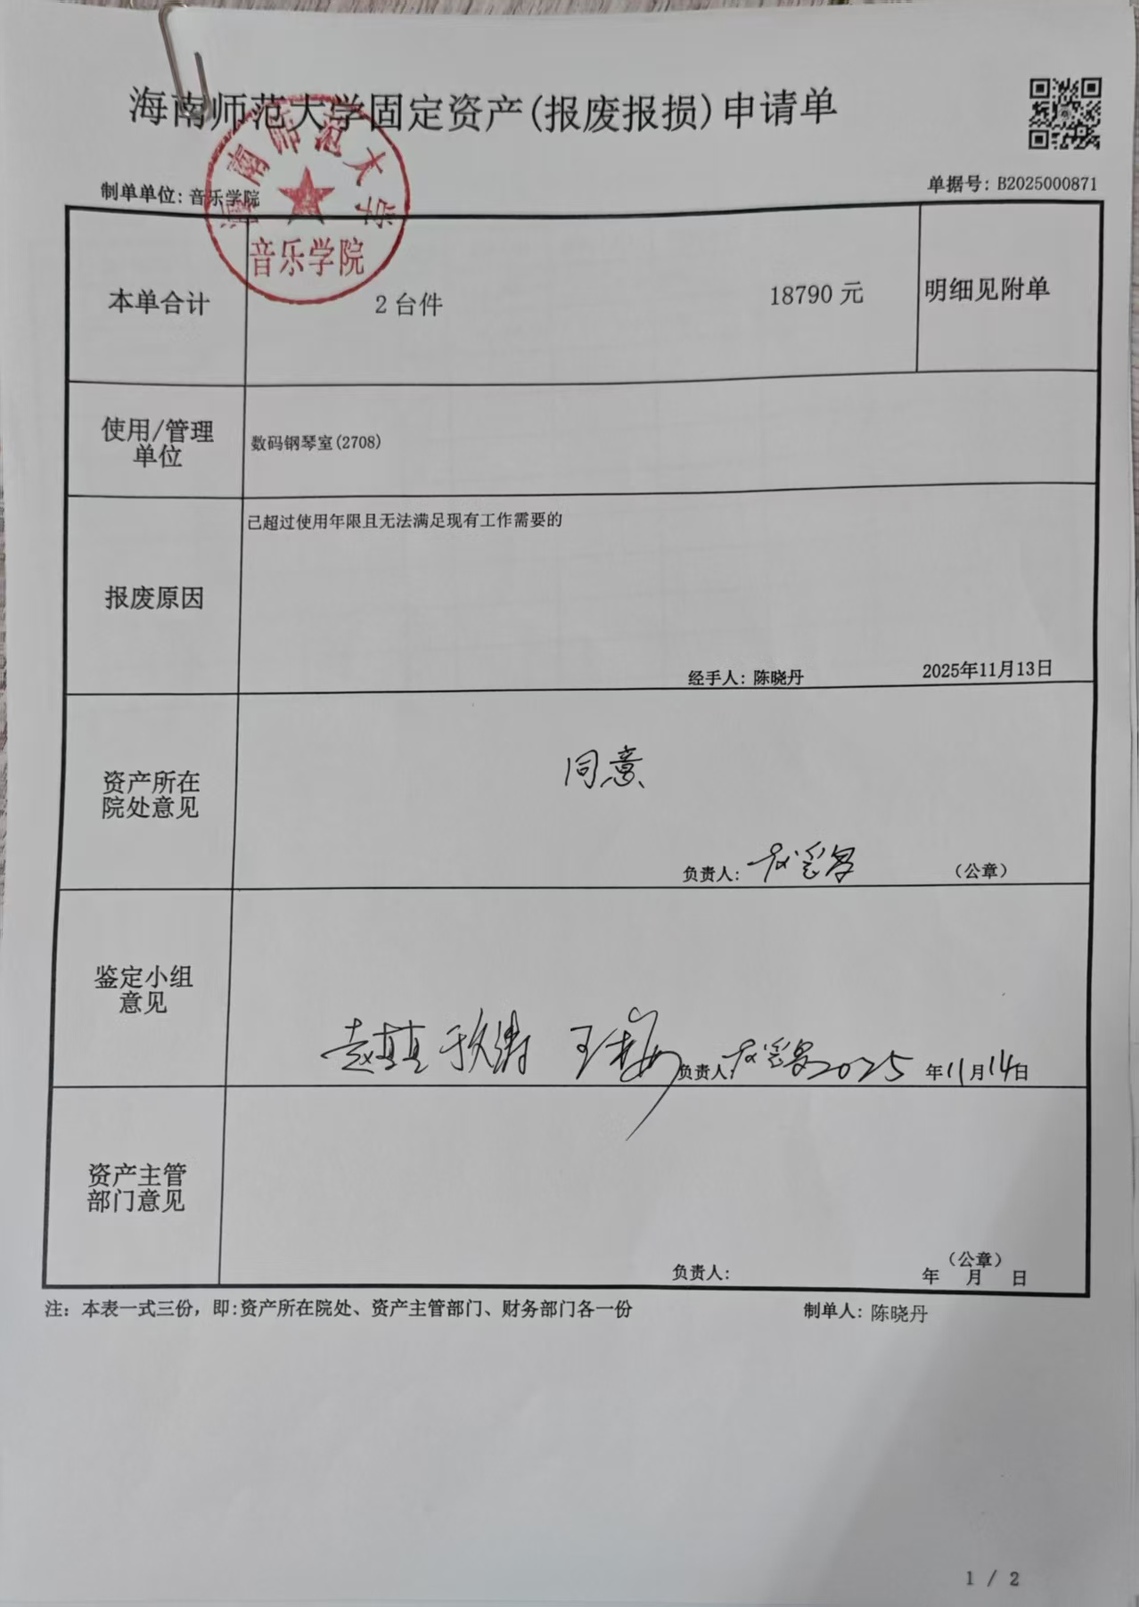 海南师范大学固定资产(报废报损)申请单
制单单位: 音乐学院
单据号: B2025000871
海南师范大学
音乐学院
本单合计
2 台件
18790 元
明细见附单
使用/管理
单位
数码钢琴室(2708)
报废原因
已超过使用年限且无法满足现有工作需要的
经手人: 陈晓丹
2025年11月13日
资产所在
院处意见
同意
负责人:
(公章)
鉴定小组
意见
负责人: 2025 年11月14日
资产主管
部门意见
负责人:
(公章)
年 月 日
注: 本表一式三份, 即:资产所在院处、资产主管部门、财务部门各一份
制单人: 陈晓丹
1 / 2